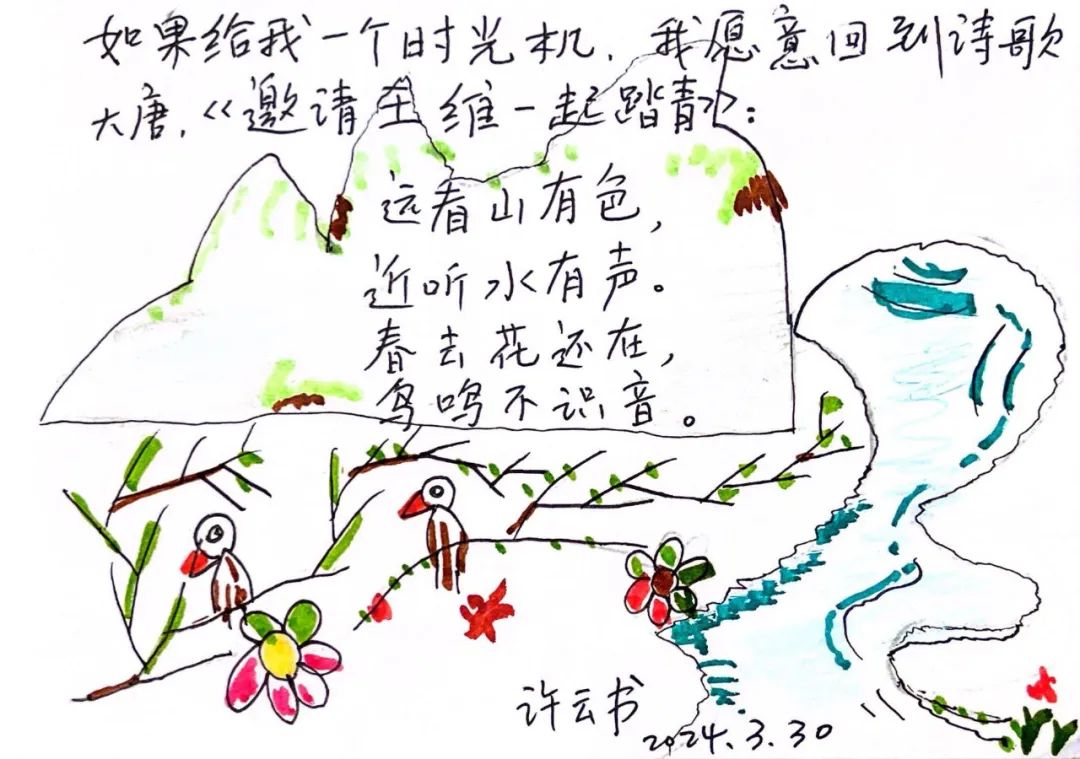 如果给我一个时光机，我愿意回到诗歌
大唐，《邀请王维一起踏青》：
远看山有色，
近听水有声。
春去花还在，
鸟鸣不识音。
许云书
2024.3.30